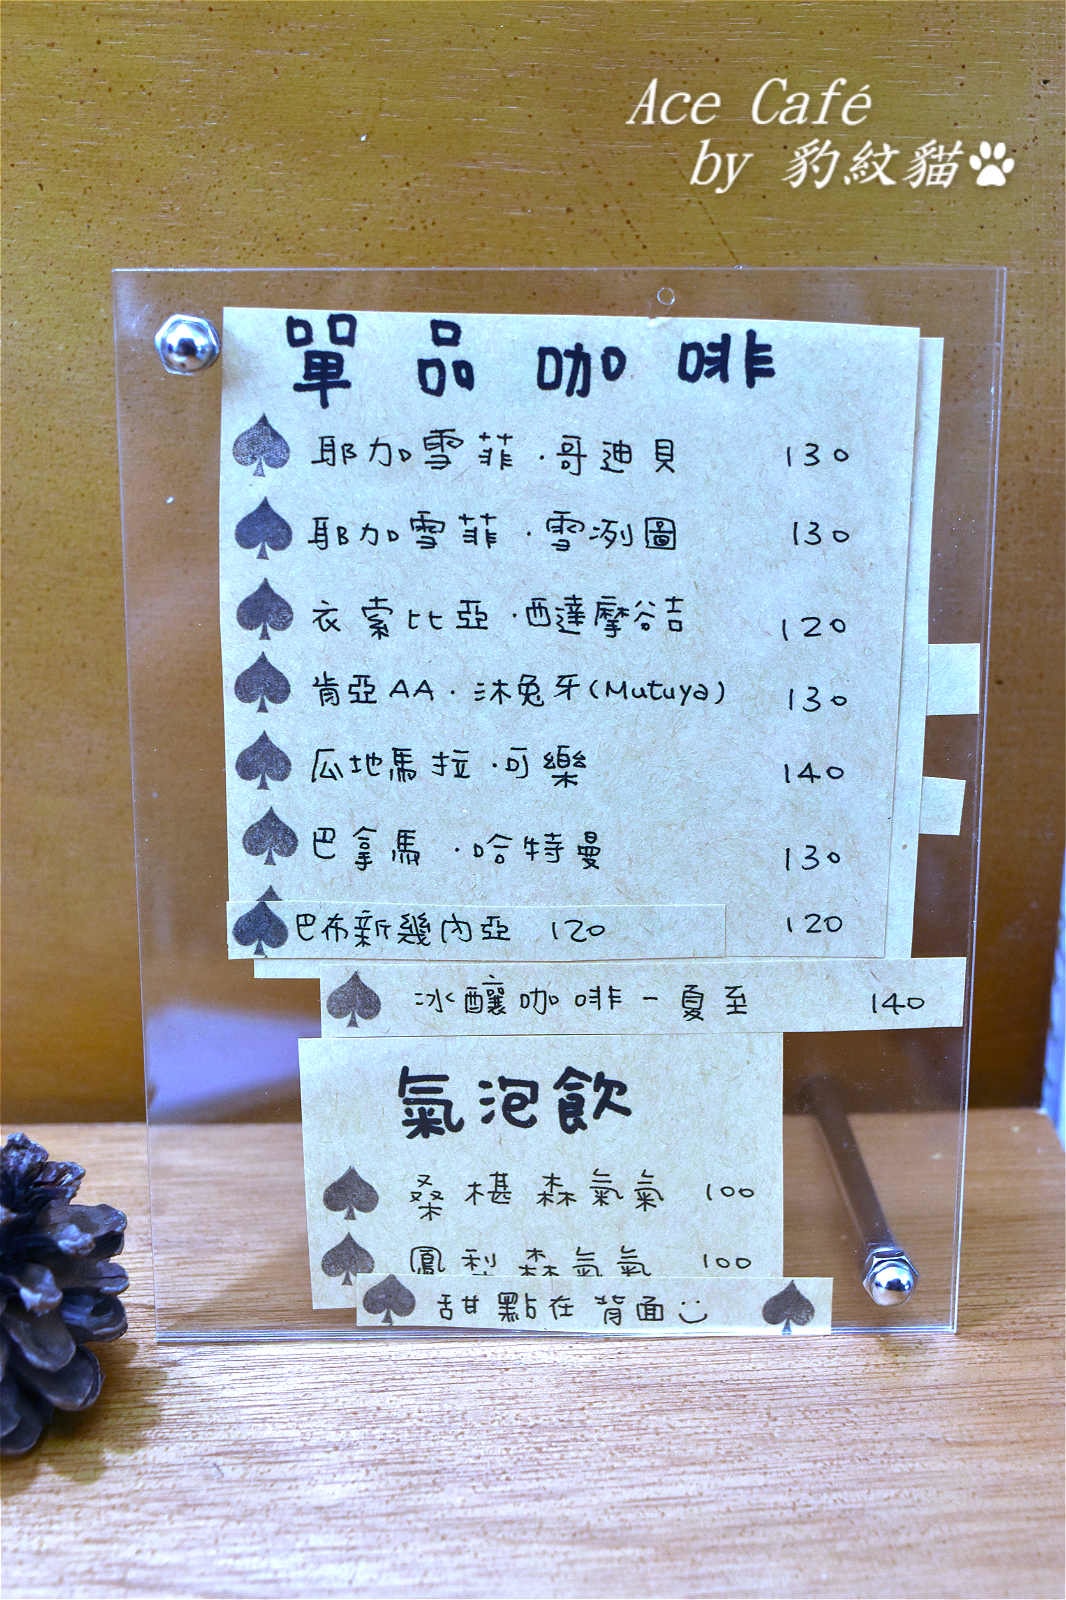 Ace Café
by 豹紋貓
單品咖啡
耶加雪菲·哥迪貝 130
耶加雪菲·雪冽圖 130
衣索比亞·西達摩谷吉 120
肯亞AA·沐兔牙(Mutuya) 130
瓜地馬拉·可樂 140
巴拿馬·哈特曼 130
巴布新幾內亞 120 120
冰釀咖啡-夏至 140
氣泡飲
桑椹森氣氣 100
鳳梨森氣氣 100
甜點在背面